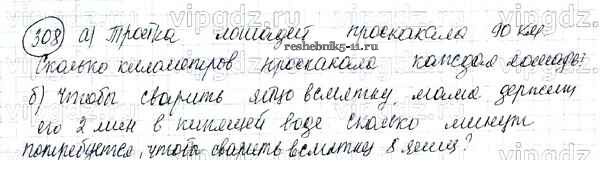 308 а) Тройка лошадей проскакала 90 км.
Сколько километров проскакала каждая лошадь?
б) Чтобы сварить яйцо всмятку, мама держит
его 2 мин в кипящей воде Сколько минут
потребуется, чтобы сварить всмятку 8 яиц?
reshebnik5-11.ru
vipgdz.ru